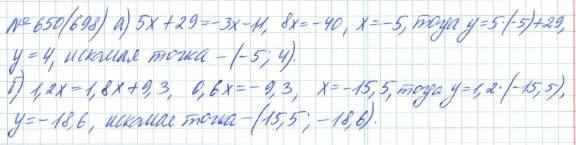 № 650(698) а) 5x + 29 = -3x - 11, 8x = -40, x = -5, тогда y = 5·(-5) + 29,
y = 4, искомая точка - (-5; 4).
б) 1,2x = 1,8x + 9,3, 0,6x = -9,3, x = -15,5, тогда y = 1,2·(-15,5),
y = -18,6, искомая точка - (15,5; -18,6).